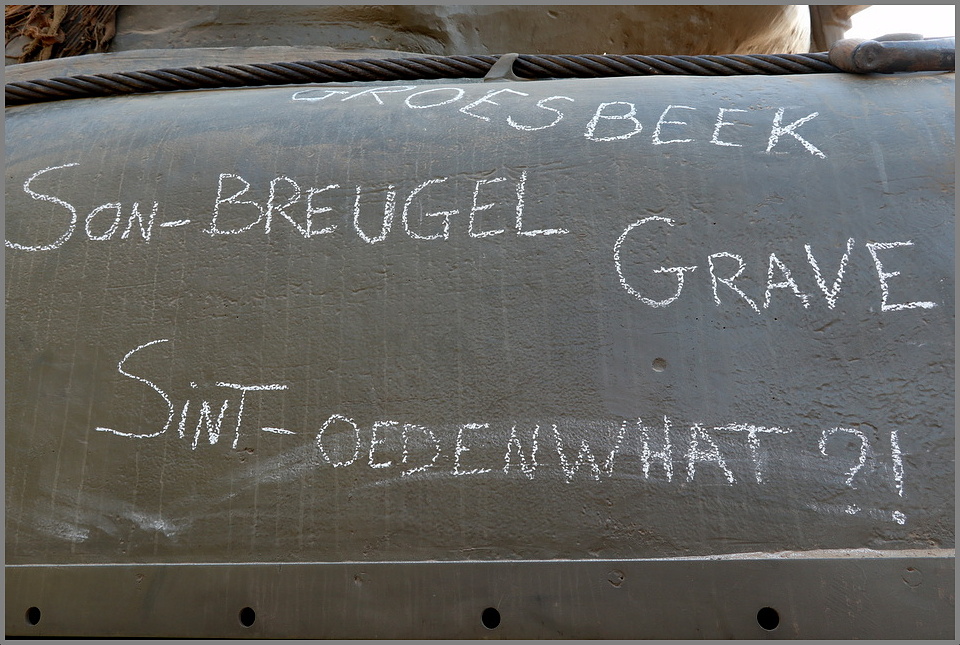 GROESBEEK
SON-BREUGEL
GRAVE
SINT-OEDENWHAT?!